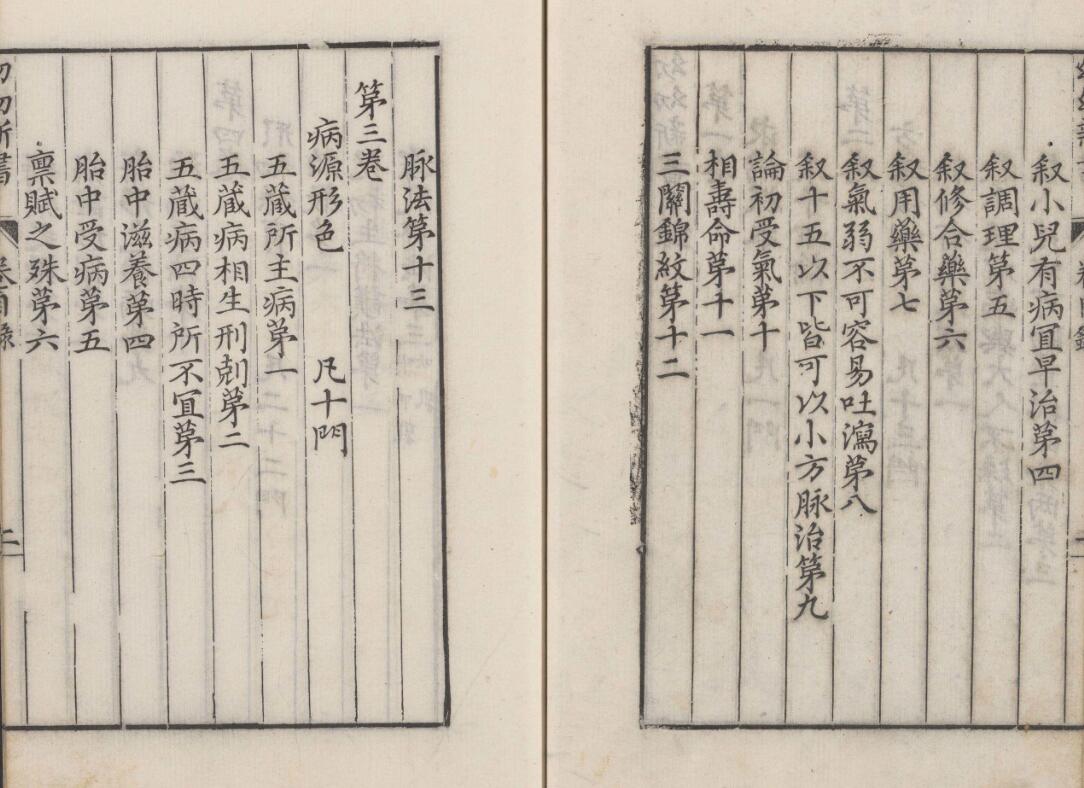 叙小兒有病冝早治苐四
叙調理第五
叙修合藥第六
叙用藥苐七
叙氣弱不可容易吐瀉苐八
叙十五以下皆可以小方脉治第九
論初受氣苐十
相壽命苐十一
三關錦紋苐十二
脉法苐十三
第三卷
病源形色 凡十門
五蔵所主病苐一
五蔵病相生刑剋苐二
五蔵病四時所不冝苐三
胎中滋養苐四
胎中受病苐五
禀賦之殊苐六
幼幼新書 卷目錄 二